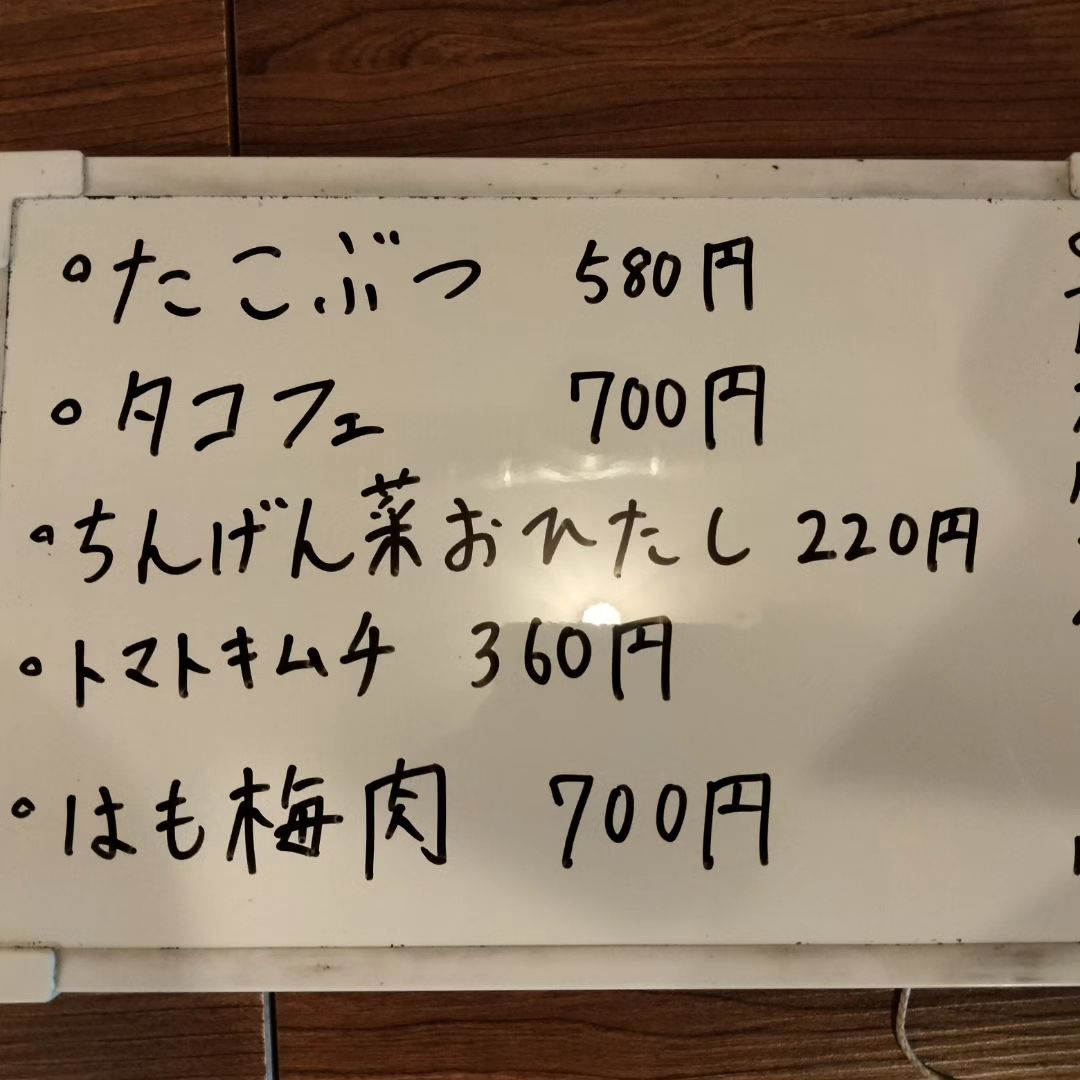 。たこぶつ 580円
。タコフェ 700円
。ちんげん菜おひたし 220円
。トマトキムチ 360円
。はも梅肉 700円